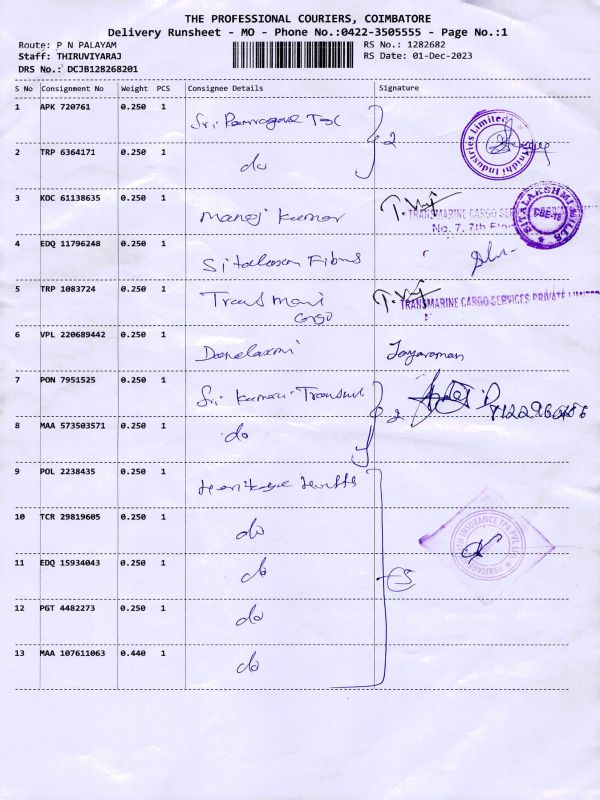 THE PROFESSIONAL COURIERS, COIMBATORE
Delivery Runsheet - MO - Phone No.:0422-3505555 - Page No.:1
Route: P N PALAYAM
RS No.: 1282682
Staff: THIRUVIYARAJ
RS Date: 01-Dec-2023
DRS No.: DCJB128268201
S No Consignment No Weight PCS Consignee Details Signature
1 APK 720761 0.250 1 Sri
2
2 TRP 6364171 0.250 1 do
Industries Limited
3 KOC 61138635 0.250 1 Manoj Kumar
TRANSMARINE CARGO SER
No. 7, 7th
SITALAKSHMI MILLS
CBE-16
4 EDQ 11796248 0.250 1
5 TRP 1083724 0.250 1 Trans Mani
Cargo
TRANSMARINE CARGO SERVICES PRIVATE LIMITED
6 VPL 220689442 0.250 1 Danelaxmi Jayaraman
7 PON 7951525 0.250 1 Sri Kumaran
2
8 MAA 573503571 0.250 1 do
9 POL 2238435 0.250 1 Heritage
10 TCR 29819605 0.250 1 do
HERITAGE HEALTH INSURANCE TPA PVT. LTD.
11 EDQ 15934043 0.250 1 do
5
12 PGT 4482273 0.250 1 do
13 MAA 107611063 0.440 1 do